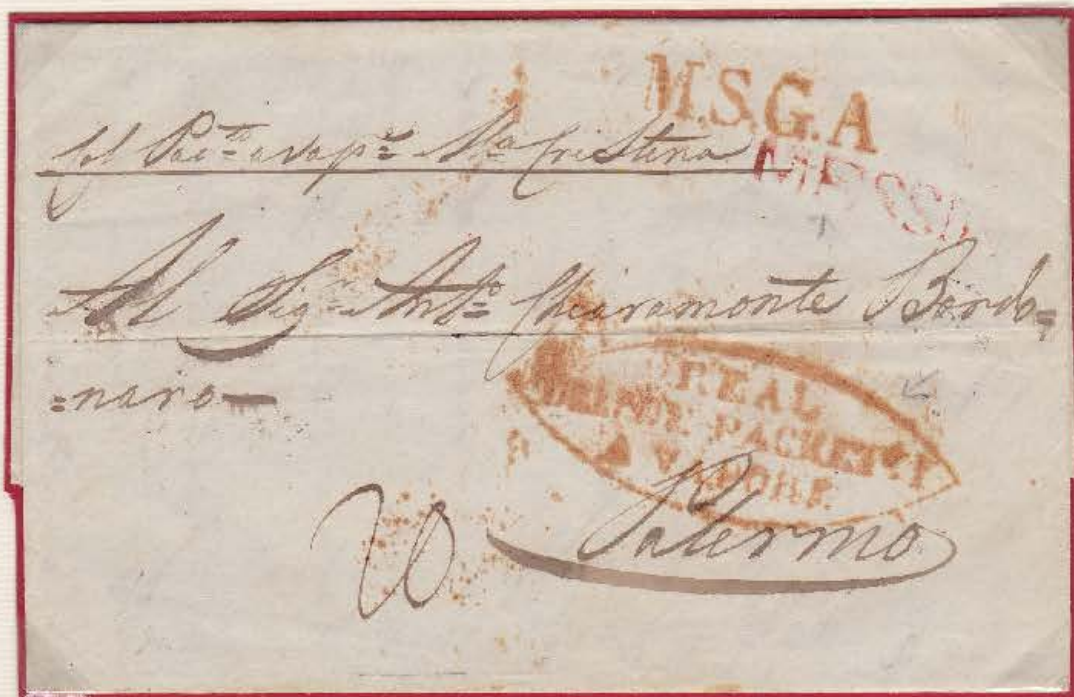 M.S.G.A
Col Pac.tto a vap.e M.a Cristina
MESSI
Al Sig.r Ant.o Chiaramonte Bordo=
=naro
REAL
PACKETTI
A VAPORE
Palermo
20